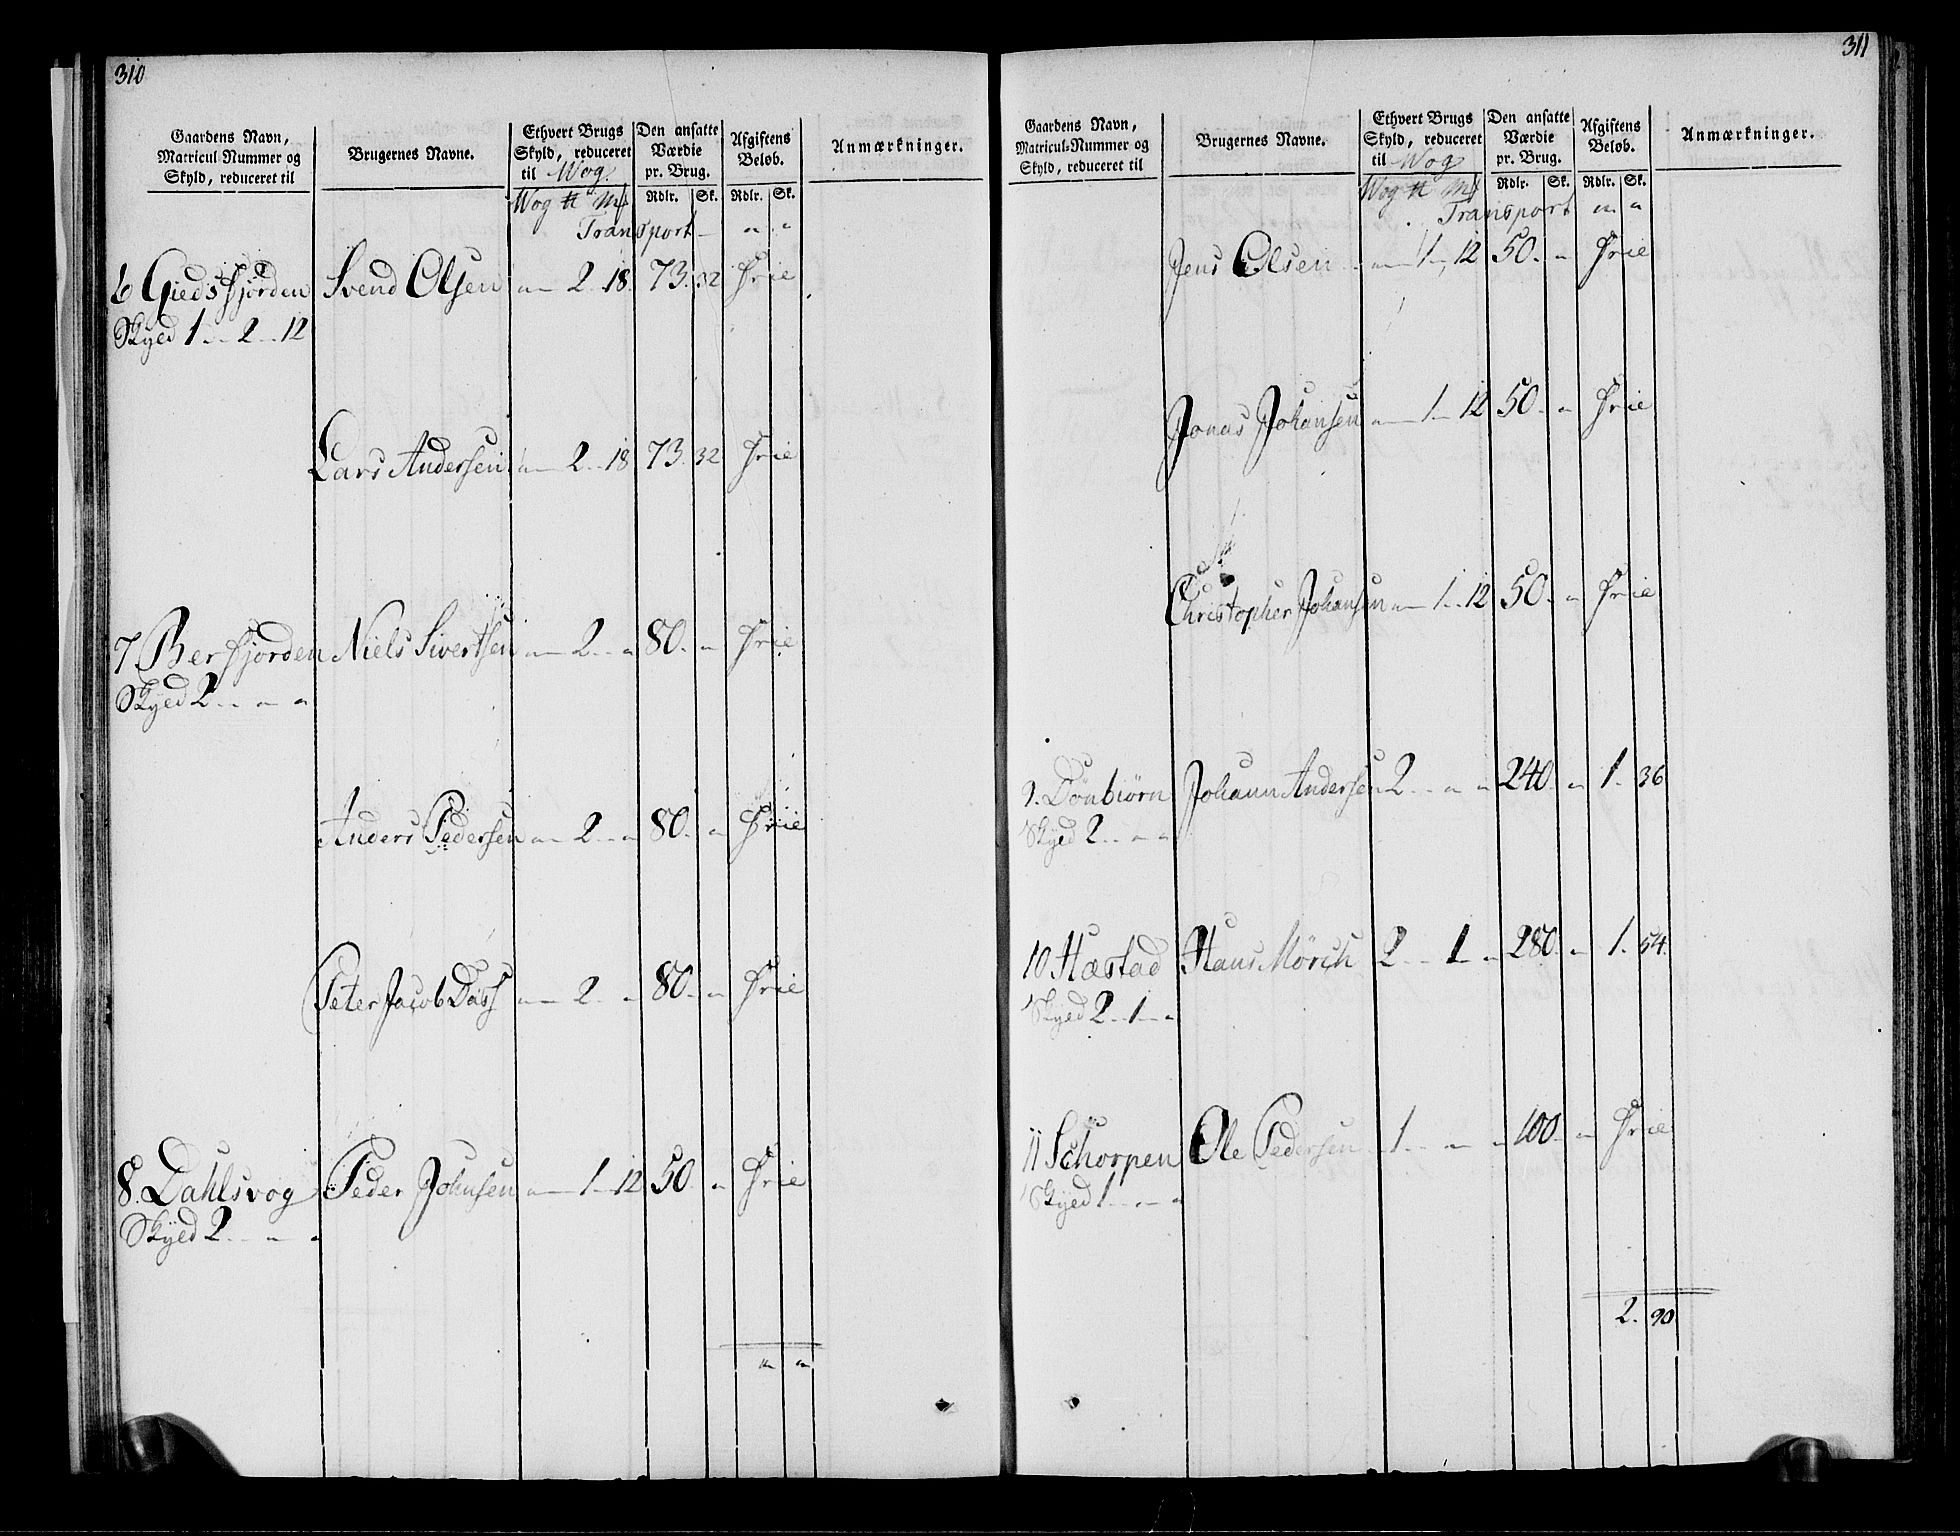 310
Gaardens Navn, Matricul-Nummer og Skyld, reduceret til
Brugernes Navne.
Ethvert Brugs Skyld, reduceret til Wog
Den ansatte Værdie pr. Brug.
Afgiftens Beløb.
Anmærkninger.
Wog ℔ Mk Rdlr. Sk. Rdlr. Sk.
Transport „ „
6 Giedsfjorden Svend Olsen „ 2 18 73. 32 Frie
Skyed 1 .. 2 .. 12
Lars Andersen „ 2 18 73. 32 Frie
7. Berfjorden Niels Sivertsen „ 2 „ 80. „ Frie
Skyed 2 .. „ „
Anders Pedersen „ 2 „ 80. „ Frie
Peter Jacob Dass „ 2 „ 80. „ Frie
8. Dahlsvog Peder Johnsen „ 1 12 50. „ Frie
Skyed 2 .. „ „
„ „
311
Gaardens Navn, Matricul-Nummer og Skyld, reduceret til
Brugernes Navne.
Ethvert Brugs Skyld, reduceret til Wog
Den ansatte Værdie pr. Brug.
Afgiftens Beløb.
Anmærkninger.
Wog ℔ Mk Rdlr. Sk. Rdlr. Sk.
Transport „ „
Jens Olsen „ 1 12 50. „ Frie
Jonas Johansen „ 1 12 50. „ Frie
Christopher Johansen „ 1 12 50. „ Frie
9. Dönbiörn Johann Andersen 2 „ „ 240. „ 1. 36
Skyed 2 .. „ „
10 Hæstad Hans Mörch 2 1 „ 280. „ 1. 54.
Skyed 2 .. 1 „
11 Schorpen Ole Pedersen 1 „ „ 100. „ Frie
Skyed 1 .. „ „
2. 90